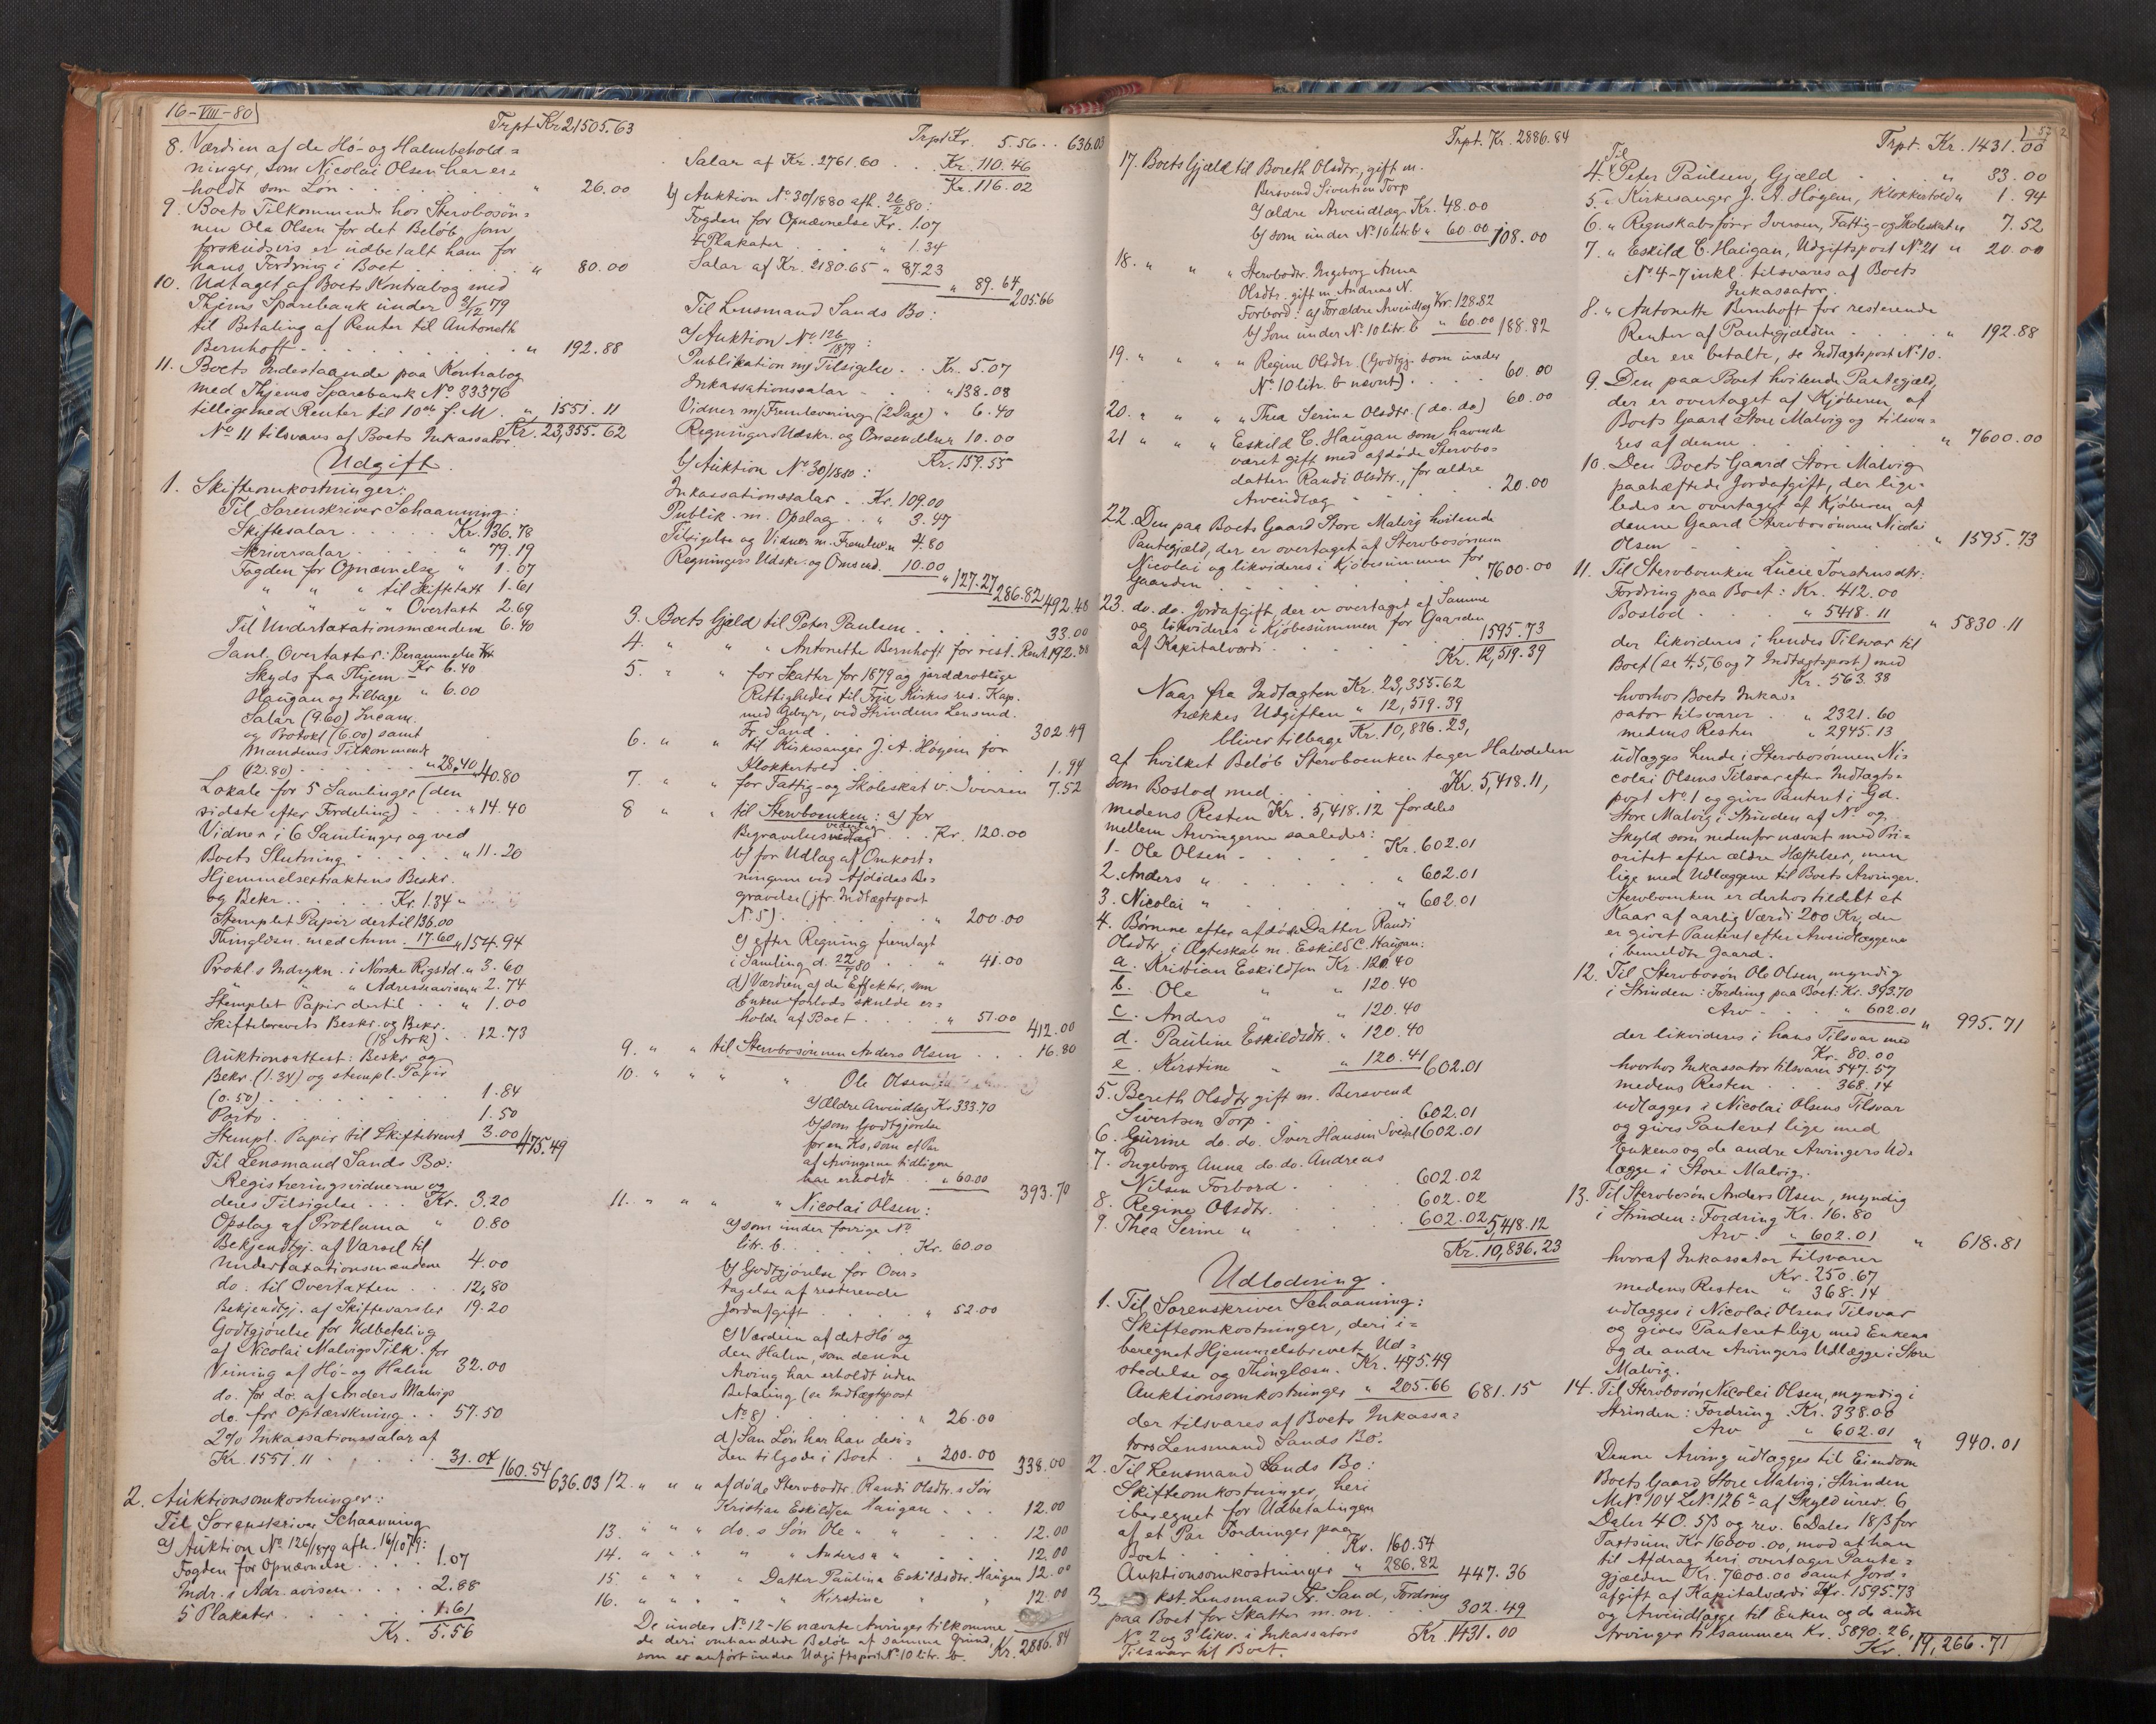 16-VIII-80
Trpt Kr 21505.63
8. Værdien af de Hø- og Halmbehold=
ninger, som Nicolai Olsen har er=
holdt som Løn . . . . " 26.00
9. Boets Tilkommende hos Stervbosøn=
nen Ole Olsen for det Beløb, som
forskudsvis er udbetalt ham for
hans Fordring i Boet . . . " 80.00
10. Udtaget af Boets Kontrabog med
Thjems Sparebank under 3/12 79
til Betaling af Renter til Antoneth
Bernhoft . . . . " 192.88
11. Boets Indestaaende paa Kontrabog
med Thjems Sparebank No 33376
tilligemed Renter til 10de f. M. . " 1551.11
No 11 tilsvares af Boets Inkassator. Kr. 23,355.62
Udgift.
1. Skifteomkostninger:
Til Sorenskriver Schaanning:
Skiftesalar . . . . Kr. 136.78
Skriversalar . . . " 79.19
Fogden for Opnævnelse " 1.07
" " " til Skiftetaxt 1.61
" " " " Overtaxt 2.69
Til Undertaxationsmændene 6.40
Janl. Overtaxter: Berammelse Kr.
Skyds fra Thjem - Kr 6.40
Haugan og tilbage " 6.00
Salar (9.60) Incam.
og Protokl (6.00) samt
Mændenes Tilkommende
(12.80) . . . . " 28.40 " 40.80
Lokale for 5 Samlinger (den
sidste efter Fordeling) . . " 14.40
Vidner i 6 Samlinger og ved
Boets Slutning . . . " 11.20
Hjemmelsextraktens Beskr.
og Bekr. . . . Kr. 1.34 "
Stemplet Papir dertil 136.00
Thinglæsn. med Anm. 17.60 " 154.94
Prokl.s Indrykn. i Norske Rigstd. " 3.60
" " " Adresseavisen " 2.74
Stemplet Papir dertil . . " 1.00
Skiftebrevets Beskr. og Bekr.
(18 Ark) . . 12.73
Auktionsattest: Beskr. og
Bekr. (1.34) og stempl. Papir
(0.50) . . . . 1.84
Porto . . . . 1.50
Stempl. Papir til Skiftebrevet 3.00 475.49
Til Lensmand Sands Bo:
Registreringsvidnerne og
deres Tilsigelse . . . Kr. 3.20
Opslag af Proklama " 0.80
Bekjendtgj. af Varsel til
Undertaxationsmændene 4.00
do. til Overtaxten . . . 12.80
Bekjendtgj. af Skiftevarsler 19.20
Godtgjørelse for Udbetaling
af Nicolai Malvigs Tilk. for
Veining af Hø- og Halm 32.00
do. for do. af Anders Malvigs
do. for Optærskning . . 57.50
2% Inkassationssalar af
Kr. 1551.11 . . . . 31.04 160.54 636.03
2. Auktionsomkostninger:
Til Sorenskriver Schaanning
a) Auktion No 126/1879 afh. 16/10 79:
Fogden for Opnævnelse . . . 1.07
Indr. i Adr. avisen . . . . 2.88
5 Plakater . . . . 1.61
Kr. 5.56
Trpt Kr. 5.56 . . 636.03
Salar af Kr. 2761.60 . . Kr. 110.46
Kr. 116.02
b) Auktion No 30/1880 afh. 26/2 80:
Fogden for Opnævnelse Kr. 1.07
4 Plakater . . . " 1.34
Salar af Kr. 2180.65 " 87.23
" 89.64
205.66
Til Lensmand Sands Bo:
a) Auktion No 126/1879:
Publikation m/ Tilsigelse . . Kr. 5.07
Inkassationssalar . . . " 138.08
Vidner m/ Fremlevering (2 Dage) " 6.40
Regningers Udskr. og Omsendelse 10.00
Kr. 159.55
b) Auktion No 30/1880:
Inkassationssalar . . Kr. 109.00
Publik. m. Opslag . . " 3.47
Tilsigelse og Vidner m. Fremlev. " 4.80
Regningers Udskr. og Omsend. 10.00
" 127.27 286.82 492.48
3. Boets Gjæld til Peter Paulsen . . . 33.00
4. " " " Antonette Bernhoft for rest. Rent. 192.88
5. " " for Skatter for 1879 og jorddrotlige
Rettigheder til Frue Kirkes res. Kap.
med Gebyr, ved Strindens Lensmd.
Fr. Sand . . . . 302.49
6. " " til Kirkesanger J. A. Högem for
Klokkertold . . . 1.94
7. " " for Fattig- og Skoleskat v. Iversen 7.52
8 " " til Stervboenken: a) for
Begravelses vederlag . . Kr. 120.00
b) for Udlag af Omkost=
ningerne ved Afdødes Be=
gravelse (jfr. Indtægtspost
No 5) . . . . " 200.00
c) efter Regning fremlagt
i Samling d. 22/7 80 . . " 41.00
d) Værdien af de Effekter, som
Enken forlods skulde er=
holde af Boet . . . . " 51.00 412.00
9. " " til Stervbosönnen Anders Olsen . . . 16.80
10. " " " " Ole Olsen
a) Ældre Arveudlæg Kr 333.70
b) som Godtgjørelse
for en Ko, som et Par
af Arvingerne tidligere
har erholdt . . " 60.00 393.70
11. " " " " Nicolai Olsen:
a) som under forrige No
litr. b. . . . Kr. 60.00
b) Godtgjørelse for Over=
tagelse af resterende
Jordafgift . . . " 52.00
c) Værdien af det Hø og
den Halm, som denne
Arving har erholdt uden
Betaling (se Indtægtspost
No 8) . . . . " 26.00
d) Som Løn har han desu=
den tilgode i Boet . . " 200.00 338.00
12. " " " afdøde Stervbodtr. Randi Olsdtr.s Søn
Kristian Eskildsen Haugan . . . 12.00
13. " " " do. s Søn Ole " " . . . 12.00
14. " " " " " Anders " " . . . 12.00
15. " " " " Datter Paulina Eskildsdtr. Haugan 12.00
16. " " " " " Kirstine " " 12.00
De under No 12-16 nævnte Arvinger tilkomme
de deri omhandlede Beløb af samme Grund,
som er anført under Udgiftspost No 10 litr. b. Kr. 2886.84
Trpt. Kr. 2886.84
17. Boets Gjæld til Boreth Olsdtr., gift m.
Bersvend Sivertsen Torp
a) ældre Arveudlæg Kr. 48.00
b) som under No 10 litr. b " 60.00 108.00
18. " " " Stervbodtr. Ingeborg Anna
Olsdtr. gift m. Andreas N.
Forbord: a) Forældre Arveudlæg Kr. 128.82
b) Som under No 10 litr. b " 60.00 188.82
19. " " " " Regine Olsdtr. (Godtgj. som under
No 10 litr. b nævnt) . . . . 60.00
20. " " " " Thea Serine Olsdtr. (do. do) 60.00
21 " " " Eskild C. Haugan som havende
været gift med afdøde Stervbo=
datter Randi Olsdtr., for ældre
Arveudlæg . . . . 20.00
22. Den paa Boets Gaard Store Malvig hvilende
Pantegjæld, der er overtaget af Stervbosønnen
Nicolai og likvideres i Kjøbesummen for
Gaarden . . . . 7600.00
23. do. do. Jordafgift, der er overtaget af Samme
og likvideres i Kjøbesummen for Gaarden
af Kapitalværdi . . . . 1595.73
Kr. 12,519.39
Naar fra Indtægten Kr. 23,355.62
trækkes Udgiften " 12,519.39
bliver tilbage Kr. 10,836.23,
af hvilket Beløb Stervboenken tager Halvdelen
som Boslod med . . . . Kr. 5,418.11,
medens Resten Kr. 5,418.12 fordeles
mellem Arvingerne saaledes:
1. Ole Olsen . . . . Kr. 602.01
2. Anders " . . . . " 602.01
3. Nicolai " . . . . " 602.01
4. Børnene efter afdøde Datter Randi
Olsdtr, i Ægteskab m. Eskild C. Haugan:
a. Kristian Eskildsen Kr. 120.40
b. Ole " " 120.40
c. Anders " " 120.40
d. Pauline Eskildsdtr. " 120.40
e. Kirstine " " 120.41 602.01
5. Bereth Olsdtr gift m. Bersvend
Sivertsen Torp . . . 602.01
6. Gurine do. do. Iver Hansen Svedal 602.01
7. Ingeborg Anna do. do. Andreas
Nilsen Forbord . . . 602.02
8. Regine Olsdtr. . . . 602.02
9. Thea Serine " . . . 602.02 5418.12
Kr. 10,836.23
Udlodning.
1. Til Sorenskriver Schaanning:
Skifteomkostninger, deri i=
beregnet Hjemmelsbrevets Ud=
stedelse og Thinglæsn. Kr. 475.49
Auktionsomkostninger " 205.66 681.15
der tilsvares af Boets Inkassa=
tors Lensmand Sands Bo.
2. Til Lensmand Sands Bo:
Skifteomkostninger, heri
iberegnet for Udbetalingen
af et Par Fordringer paa
Boet . . . . Kr. 160.54
Auktionsomkostninger " 286.82 447.36
3 kst. Lensmand Fr. Sand, Fordring
paa Boet for Skatter m. m. . . 302.49
No 2 og 3 likv. i Inkassators Kr. 1431.00
Tilsvar til Boet.
572
Trpt. Kr. 1431.00
Til
4. Peter Paulsen, Gjæld . . . " 33.00
5. " Kirkesanger J. A. Högem, Klokkertold " 1.94
6. " Regnskabsfører Iversen, Fattig- og Skoleskat " 7.52
7. " Eskild C. Haugan, Udgiftspost No 21 " 20.00
No 4-7 inkl. tilsvares af Boets
Inkassator.
8. " Antonette Bernhoft for resterende
Renter af Pantegjælden . . . " 192.88
der ere betalte, se Indtægtspost No 10.
9. Den paa Boet hvilende Pantegjæld,
der er overtaget af Kjøberen af
Boets Gaard Store Malvig og tilsva=
res af denne . . . . " 7600.00
10. Den Boets Gaard Store Malvig
paahæftede Jordafgift, der lige=
ledes er overtaget af Kjøberen af
denne Gaard Stervbosönnen Nicolai
Olsen . . . . " 1595.73
11. Til Stervboenken Lucie Torstensdtr:
Fordring paa Boet: Kr. 412.00
Boslod . . . " 5418.11 " 5830.11
der likvideres i hendes Tilsvar til
Boet (se 4, 5, 6 og 7 Indtægtspost) med
Kr. 563.38
hvorhos Boets Inkas=
sator tilsvarer . . " 2321.60
medens Resten " 2945.13
udlægges hende i Stervbosönnen Ni=
colai Olsens Tilsvar efter Indtægts=
post No. 1 og gives Panteret i Gd.
Store Malvig i Strinden af No og
Skyld som nedenfor nævnt med Pri=
oritet efter ældre Hæftelser, men
lige med Udlæggene til Boets Arvinger.
Stervboenken er derhos tildelt et
Kaar af aarlig Værdi 200 Kr, der
er givet Panteret efter Arveudlæggene
i bemeldte Gaard.
12. Til Stervbosøn Ole Olsen, myndig
i Strinden: Fordring paa Boet: Kr. 393.70
Arv . . . " 602.01 " 995.71
der likvideres i hans Tilsvar med
Kr. 80.00
hvorhos Inkassator tilsvarer 547.57
medens Resten . . . 368.14
udlægges i Nicolai Olsens Tilsvar
og gives Panteret lige med
Enkens og de andre Arvingers Ud=
lægge i Store Malvig.
13. Til Stervbosøn Anders Olsen, myndig
i Strinden: Fordring Kr. 16.80
Arv . " 602.01 " 618.81
hvoraf Inkassator tilsvarer
Kr. 250.67
medens Resten " 368.14
udlægges i Nicolai Olsens Tilsvar
og gives Panteret lige med Enkens
og de andre Arvingers Udlægge i Store
Malvig.
14. Til Stervbosøn Nicolai Olsen, myndig i
Strinden: Fordring . Kr. 338.00
Arv " 602.01 " 940.01
Denne Arving udlægges til Eiendom
Boets Gaard Store Malvig i Strinden
M No 104 L No 126a af Skyld urev. 6
Daler 40. 5ß og rev. 6 Daler 18 ß for
Taxtsum Kr 16000.00, mod at han
til Afdrag heri overtager Pante=
gjælden Kr. 7600.00 samt Jord=
afgift af Kapitalværdi Kr. 1595.73
og Arveudlægge til Enken og de andre
Arvinger tilsammen Kr. 5890.26,
Kr. 19,266.71